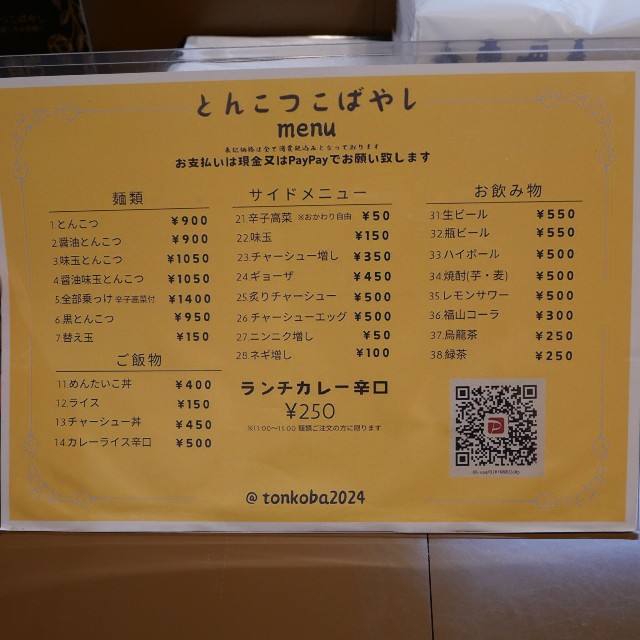 とんこつこばやし
menu
表記価格は全て消費税込みとなっております
お支払いは現金又はPayPayでお願い致します
麺類
1.とんこつ ¥900
2.醤油とんこつ ¥900
3.味玉とんこつ ¥1050
4.醤油味玉とんこつ ¥1050
5.全部乗っけ 辛子高菜付 ¥1400
6.黒とんこつ ¥950
7.替え玉 ¥150
ご飯物
11.めんたいこ丼 ¥400
12.ライス ¥150
13.チャーシュー丼 ¥450
14.カレーライス辛口 ¥500
サイドメニュー
21.辛子高菜 ※おかわり自由 ¥50
22.味玉 ¥150
23.チャーシュー増し ¥350
24.ギョーザ ¥450
25.炙りチャーシュー ¥500
26.チャーシューエッグ ¥500
27.ニンニク増し ¥50
28.ネギ増し ¥100
ランチカレー辛口
¥250
お飲み物
31.生ビール ¥550
32.瓶ビール ¥550
33.ハイボール ¥500
34.焼酎(芋・麦) ¥500
35.レモンサワー ¥500
36.福山コーラ ¥300
37.烏龍茶 ¥250
38.緑茶 ¥250
@tonkoba2024